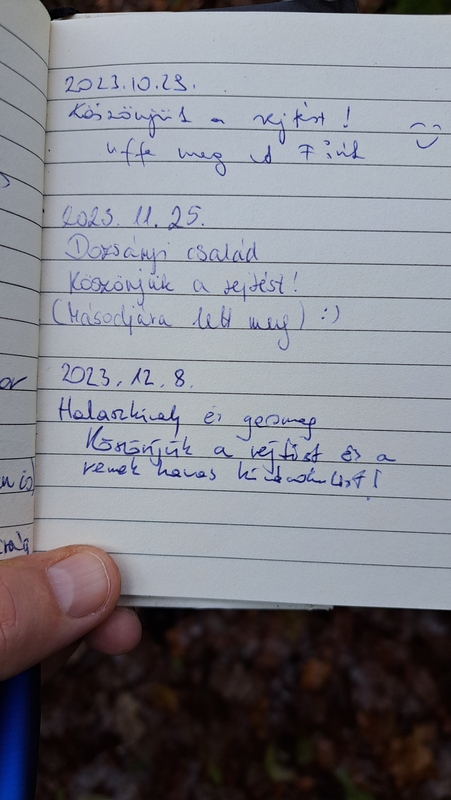 2023.10.29.
Köszönjük a rejtést!
uffe meg a Fiúk
2023. 11. 25.
Dozsányi család
Köszönjük a rejtést!
(Másodjára lett meg) :)
2023. 12. 8.
Halaszkiraly és gesmeg
Köszönjük a rejtést és a
remek havas kirándulást!
or